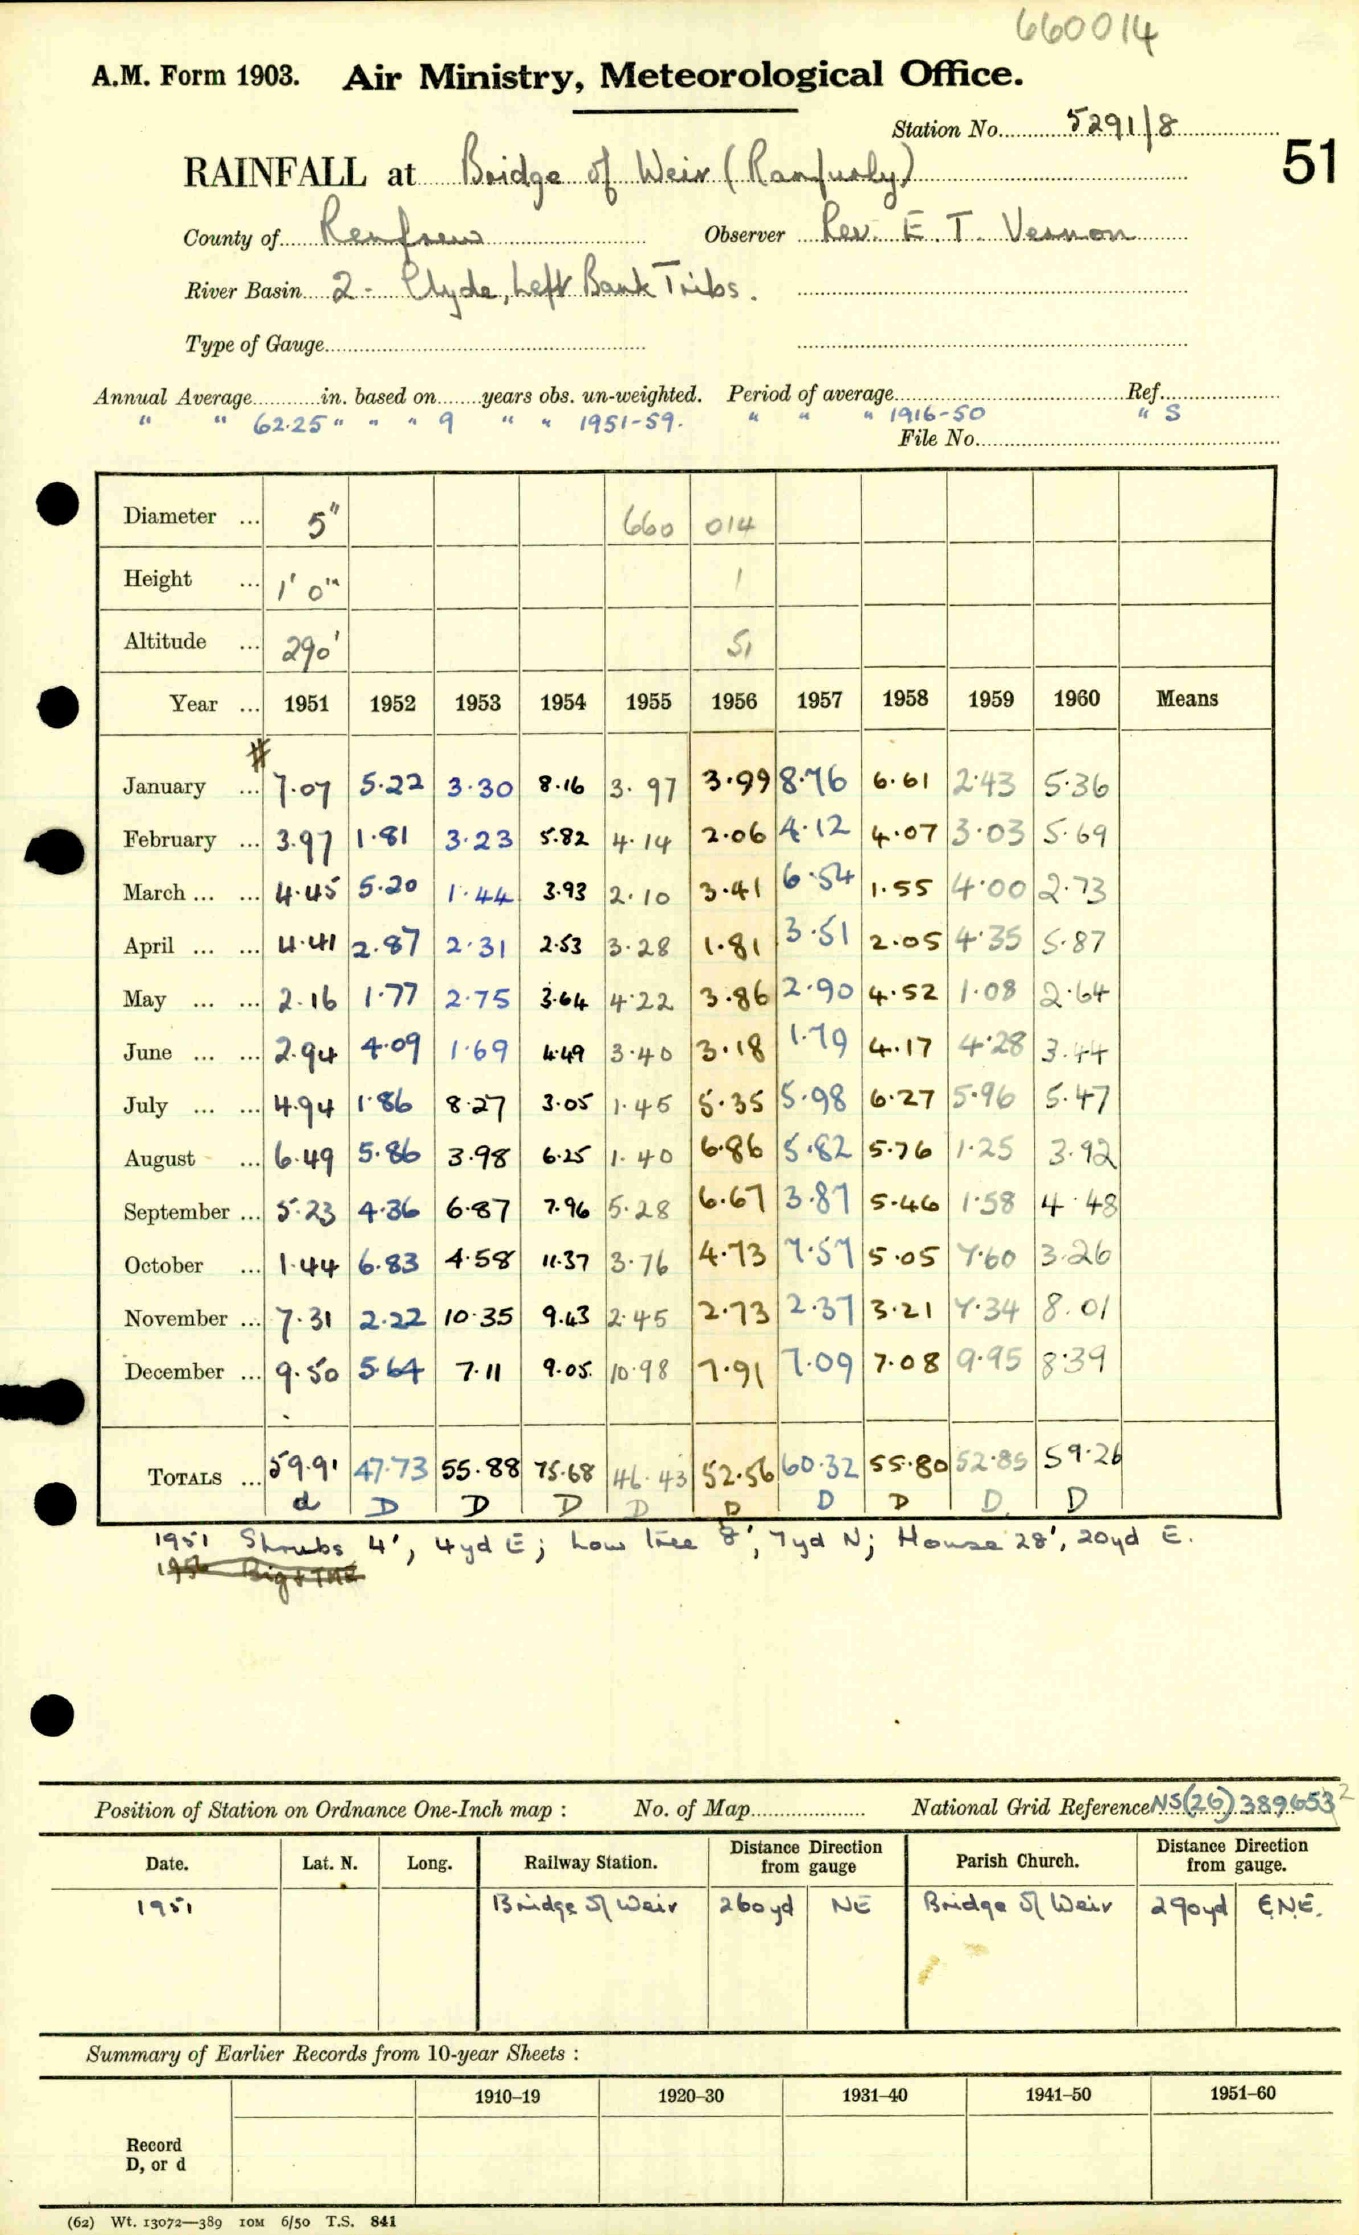 660014
A.M. Form 1903. Air Ministry, Meteorological Office.
Station No. 5291/8
51
RAINFALL at Bridge of Weir (Ranfurly)
County of Renfrew Observer Rev. E. T. Vernon
River Basin 2 - Clyde, Left Bank Tribs.
Type of Gauge
Annual Average in. based on years obs. un-weighted. Period of average Ref.
" " 62.25 " " " 9 " " 1951-59. " " " 1916-50 " S
File No.
Diameter ... 5" 660 014
Height ... 1' 0" 1
Altitude ... 290' 51
Year ... 1951 1952 1953 1954 1955 1956 1957 1958 1959 1960 Means
#
January ... 7.07 5.22 3.30 8.16 3.97 3.99 8.76 6.61 2.43 5.36
February ... 3.97 1.81 3.23 5.82 4.14 2.06 4.12 4.07 3.03 5.69
March ... ... 4.45 5.20 1.44 3.93 2.10 3.41 6.54 1.55 4.00 2.73
April ... ... 4.41 2.87 2.31 2.53 3.28 1.81 3.51 2.05 4.35 5.87
May ... ... 2.16 1.77 2.75 3.64 4.22 3.86 2.90 4.52 1.08 2.64
June ... ... 2.94 4.09 1.69 4.49 3.40 3.18 1.79 4.17 4.28 3.44
July ... ... 4.94 1.86 8.27 3.05 1.45 5.35 5.98 6.27 5.96 5.47
August ... 6.49 5.86 3.98 6.25 1.40 6.86 5.82 5.76 1.25 3.92
September ... 5.23 4.36 6.87 7.96 5.28 6.67 3.87 5.46 1.58 4.48
October ... 1.44 6.83 4.58 11.37 3.76 4.73 7.57 5.05 7.60 3.26
November ... 7.31 2.22 10.35 9.43 2.45 2.73 2.37 3.21 7.34 8.01
December ... 9.50 5.64 7.11 9.05. 10.98 7.91 7.09 7.08 9.95 8.39
TOTALS ... 59.91 47.73 55.88 75.68 46.43 52.56 60.32 55.80 52.85 59.26
d D D D D D D D D. D
1951 Shrubs 4', 4yd E; Low tree 8', 7yd N; House 28', 20yd E.
Position of Station on Ordnance One-Inch map : No. of Map National Grid Reference NS(26) 389653 2
Date. Lat. N. Long. Railway Station. Distance Direction from gauge Parish Church. Distance Direction from gauge.
1951 Bridge of Weir 260yd NE Bridge of Weir 290yd E.N.E.
Summary of Earlier Records from 10-year Sheets :
1910–19 1920–30 1931–40 1941–50 1951–60
Record
D, or d
(62) Wt. 13072—389 10M 6/50 T.S. 841